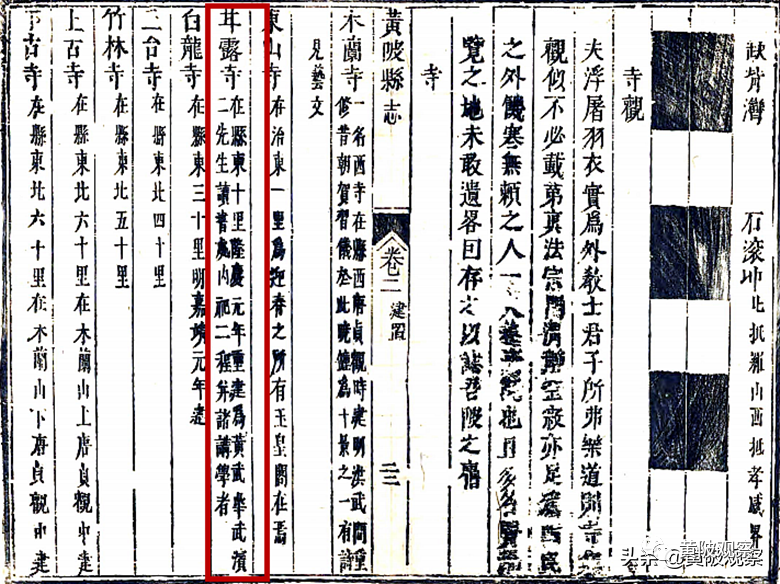 背灣 石滾 北抵羅山西抵孝感界
寺觀
夫浮屠羽衣實為外教士君子所弗樂道則寺
觀似不必載第 法宗門清靜空寂亦足
之外饑寒無賴之人一入 也且多名賢
覽之地未敢遺畧 存之以誌吾陂之舊
寺
黃陂縣志 卷二 建置 二三
木蘭寺 一名西寺在縣西唐貞觀時建明洪武間重
修昔朝賀習儀於此曉鐘為十景之一有詩
見藝文
東山寺 在治東一里為迎春之所有玉皇閣在焉
甘露寺 在縣東十里隆慶元年重建為黃武皋武濱
二先生讀書處內祀二程并諸講學者
白龍寺 在縣東三十里明嘉靖元年建
二台寺 在縣東北四十里
竹林寺 在縣東北五十里
上古寺 在縣東北六十里在木蘭山上唐貞觀中建
下古寺 在縣東北六十里在木蘭山下唐貞觀中建
黄陂观察
头条@黄陂观察